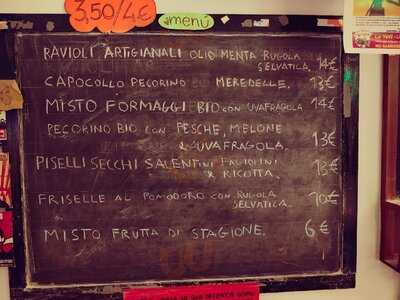 3,50/4€
menú
RAVIOLI ARTIGIANALI OLIO MENTA RUGOLA
SELVATICA. 14€
CAPOCOLLO PECORINO E MEREDELLE. 13€
MISTO FORMAGGI BIO CON UVAFRAGOLA 14€
PECORINO BIO CON PESCHE, MELONE
& UVAFRAGOLA. 13€
PISELLI SECCHI SALENTINI FAGIOLINI
& RICOTTA. 13€
FRISELLE AL POMODORO CON RUGOLA
SELVATICA. 10€
MISTO FRUTTA DI STAGIONE. 6€